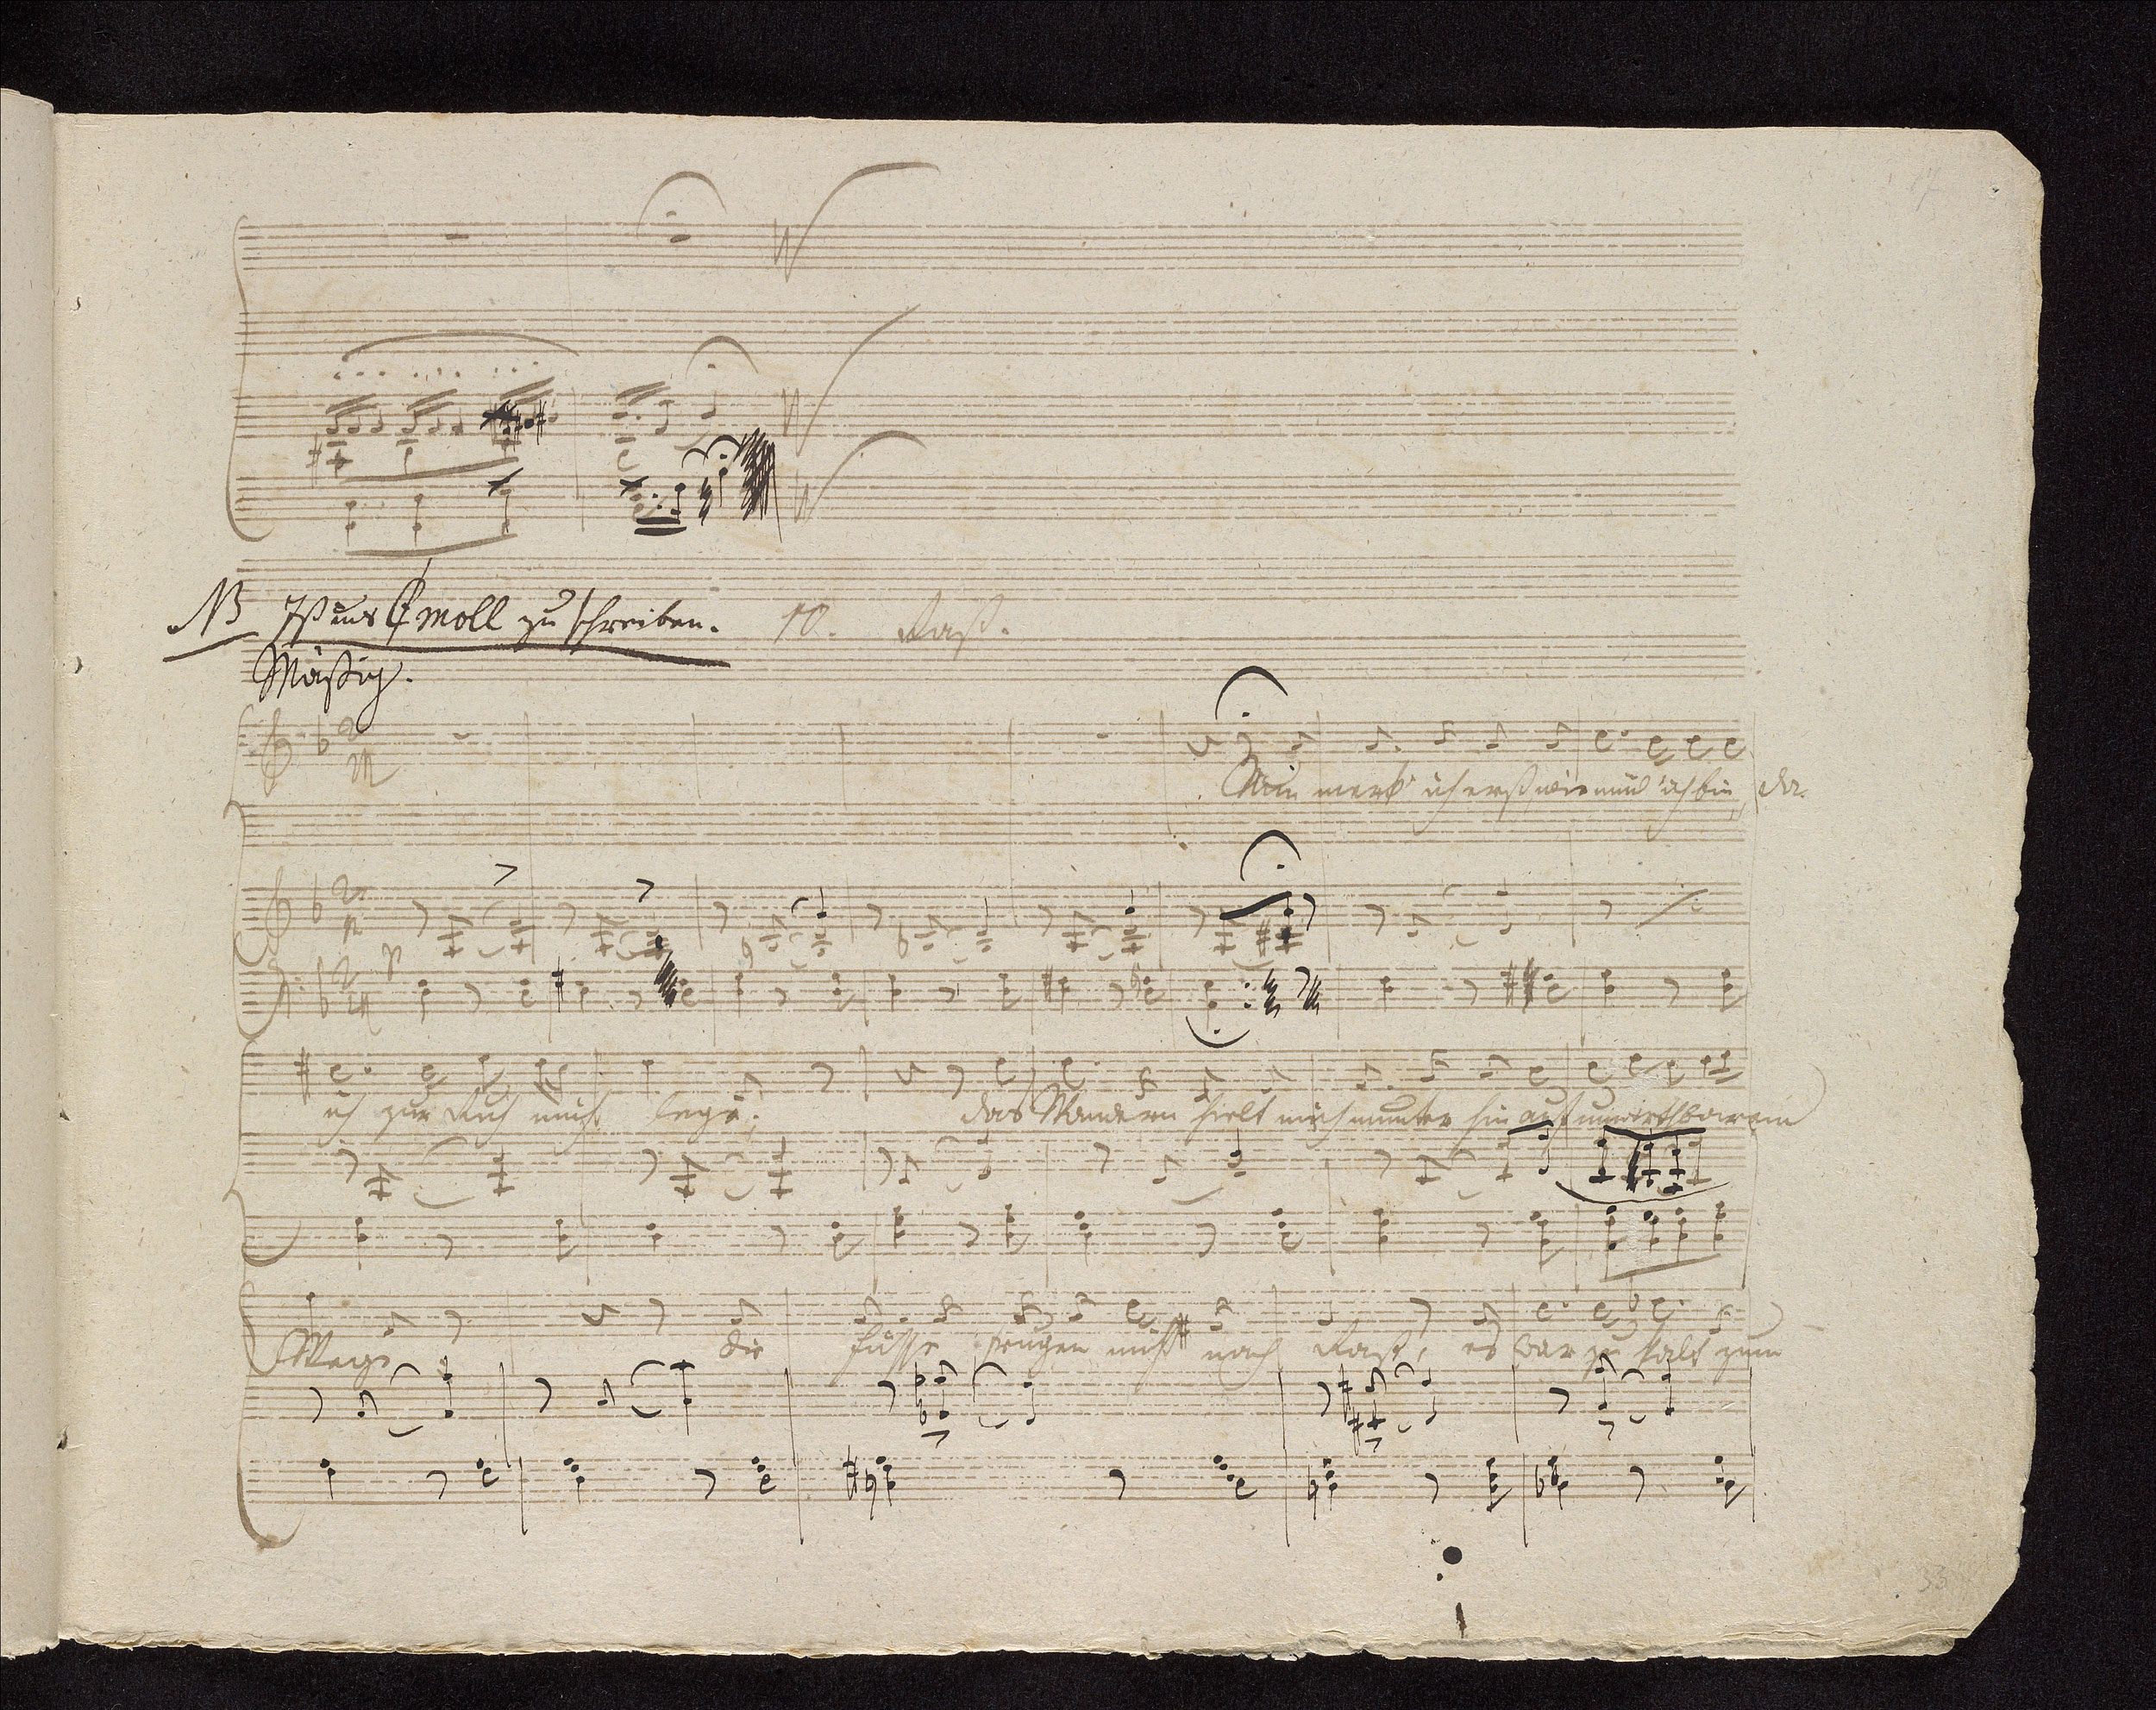 17
NB Ist aus C moll zu schreiben. 10. Rast.
Mäßig.
Nun merk' ich erst wie müd' ich bin, da
p
ich zur Ruh mich lege;
das Wandern hielt mich munter hin auf unwirthbarem
Wege
die Füsse frugen nicht nach Rast, es war zu kalt zum
33